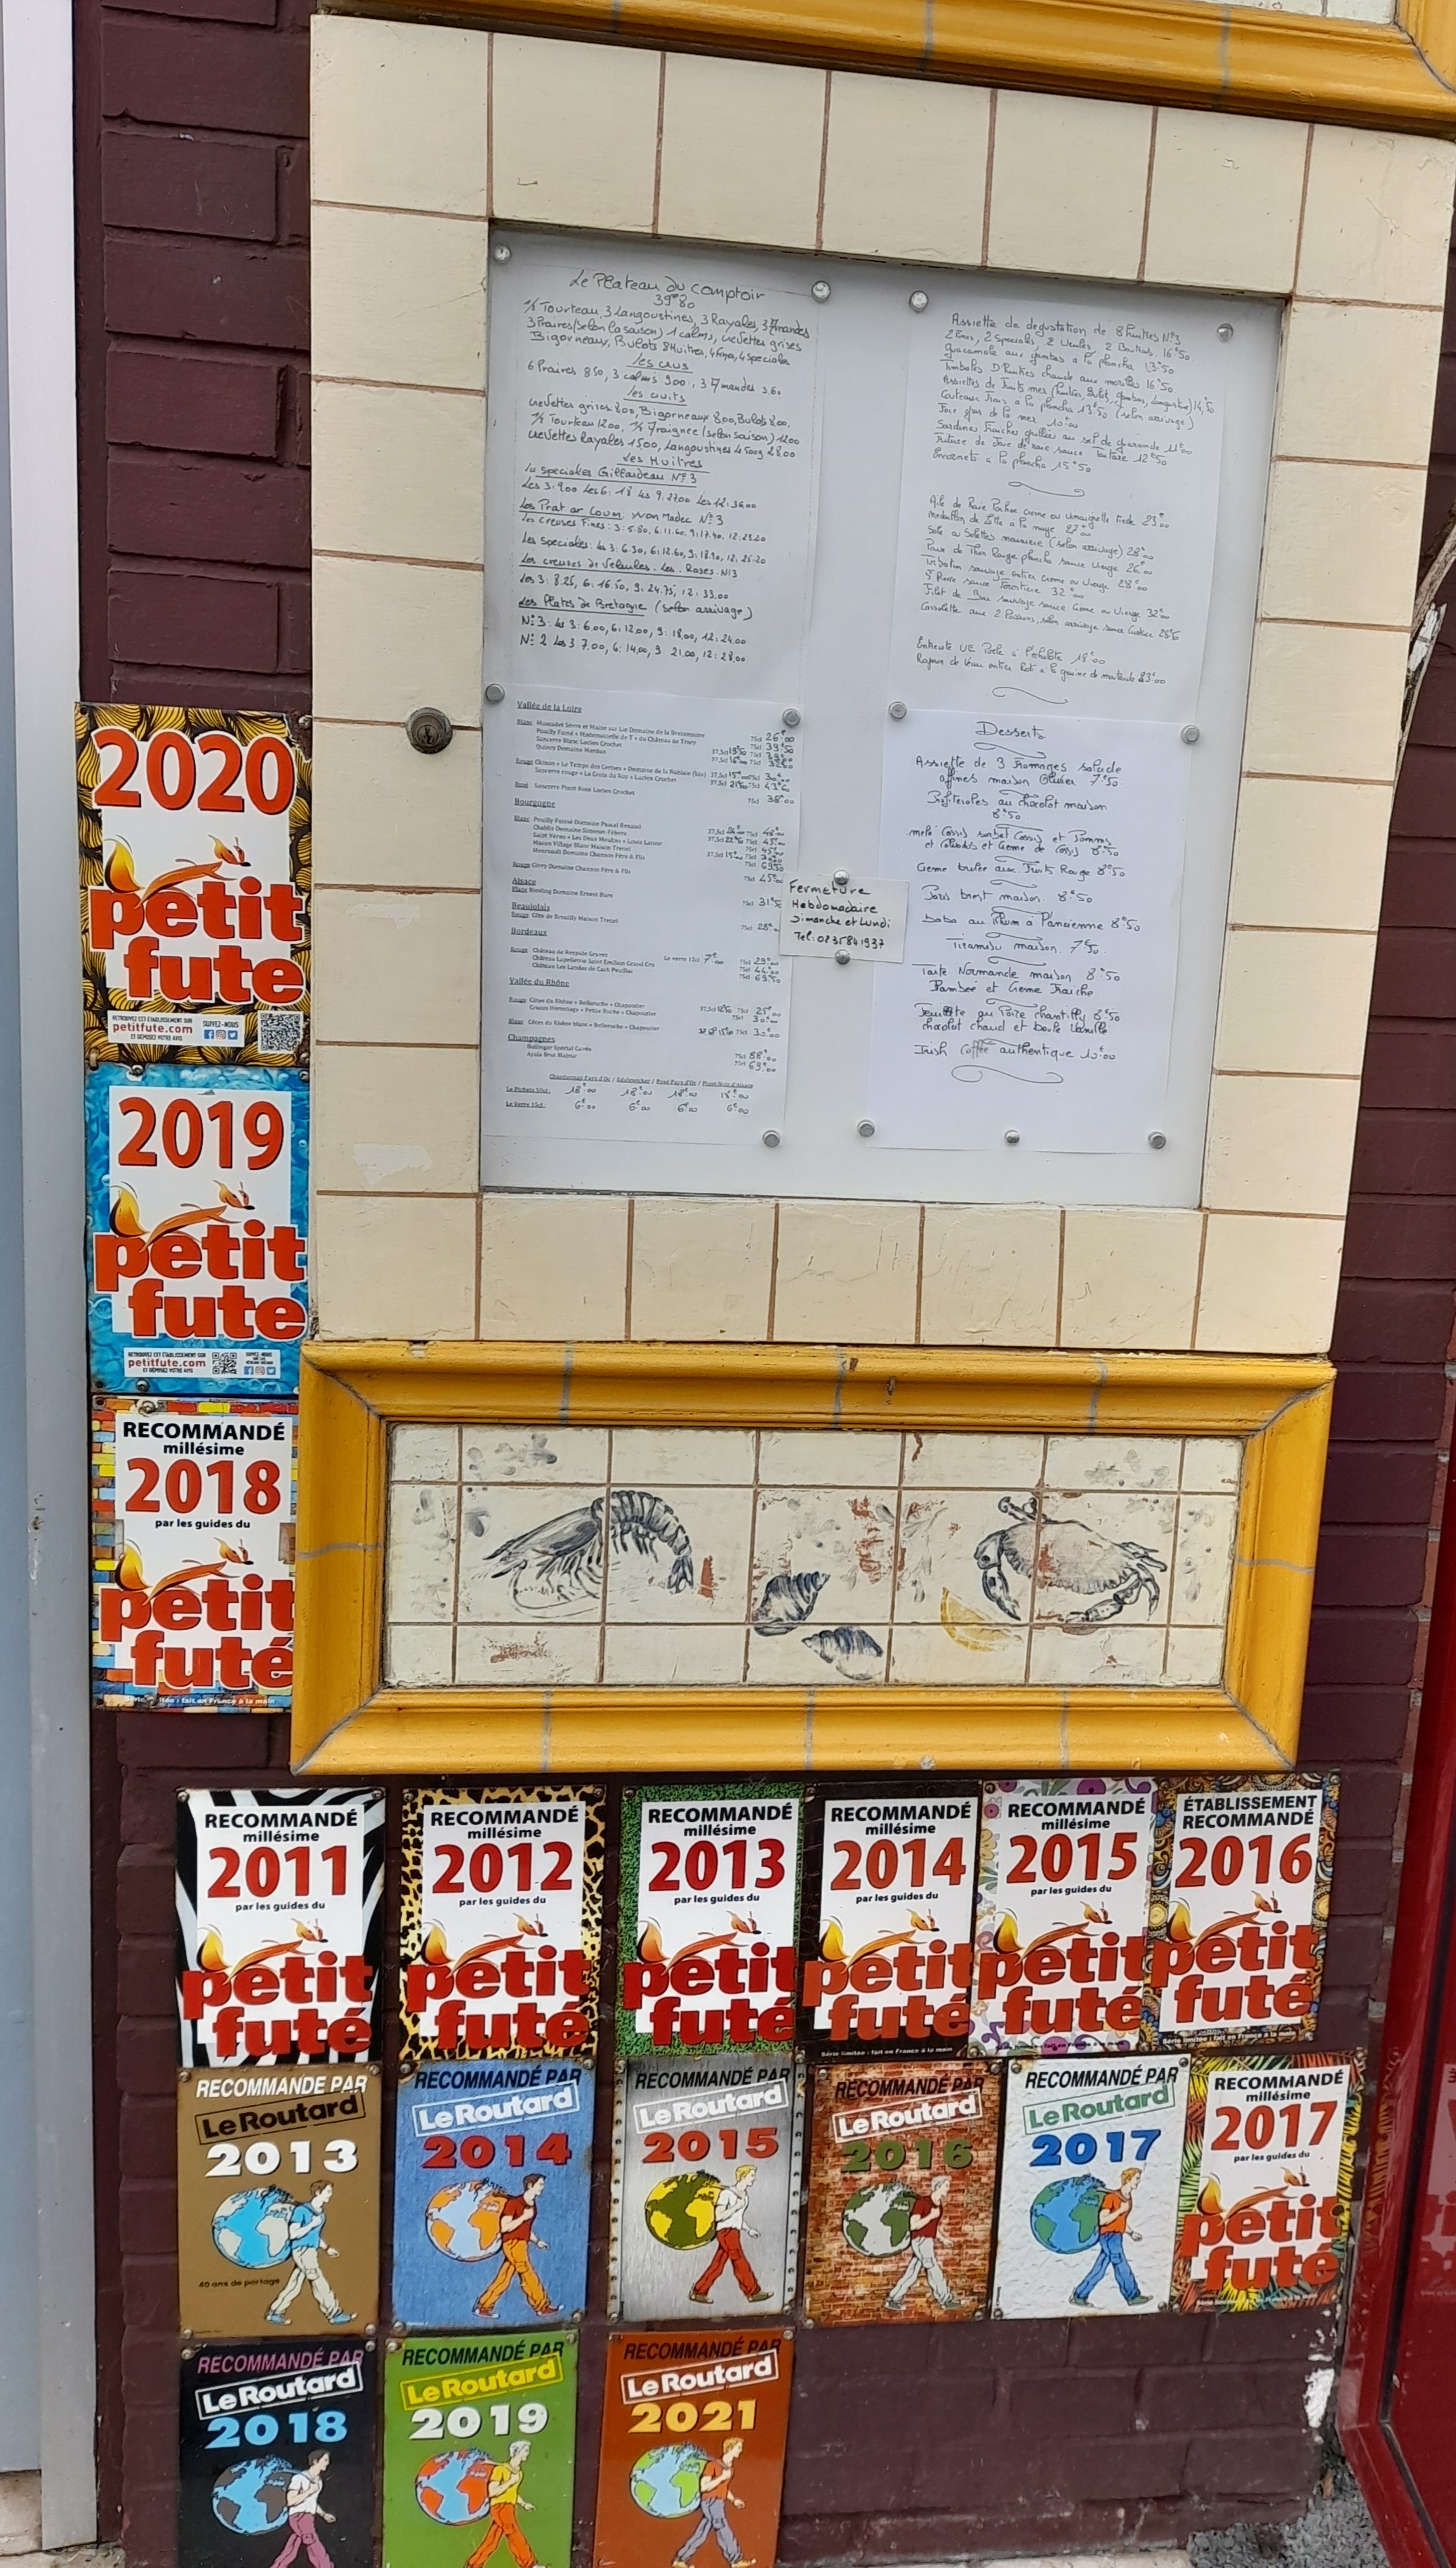 Le Plateau du Comptoir
39€80
½ Tourteau, 3 Langoustines, 3 Royales, 3 Amandes
3 Praires (selon la saison) 1 calms, crevettes grises
Bigorneaux, Bulots 8 Huitres, 4 fines, 4 speciales
Les crus
6 Praires 8.50, 3 calmis 9.00, 3 Amandes 3.60
Les cuits
crevettes grises 8.00, Bigorneaux 8.00, Bulots 8.00,
½ Tourteau 12.00, ½ Araignée (selon saison) 12.00
crevettes Royales 15.00, Langoustines 4 500g 28.00
Les Huitres
La speciales Gillardeau N°3
Les 3: 9.00 Les 6: 18 Les 9: 27.00 Les 12: 36.00
Les Prat ar Coum yvon Madec N°3
Les creuses Fines: 3: 5.80, 6: 11.60, 9: 17.40, 12: 23.20
Les speciales: Les 3: 6.30, 6: 12.60, 9: 18.90, 12: 25.20
Les creuses de Veules. Les. Roses. N°3
Les 3: 8.25, 6: 16.50, 9: 24.75, 12: 33.00
Les Plates de Bretagne (selon arrivage)
N°3: Les 3: 6.00, 6: 12.00, 9: 18.00, 12: 24.00
N°2 Les 3 7.00, 6: 14.00, 9 21.00, 12: 28.00
Assiette de degustation de 8 Huitres N°3
2 Fines, 2 Speciales, 2 Veules 2 16€50
guacamole aux gambas a la plancha 13€50
Timbales D'Huitres chaude aux morilles 16€50
Assiettes de Fruits mer (Huitres, Bulot, gambas, Langoustine) 14,50
Couteaux Frais a la plancha 13€50 (selon arrivage)
Foie gras de la mer 10€00
Sardines Fraiches grillées au sel de guerande 11€00
Friture de Joue de raie sauce Tartare 12€50
Encornets a la plancha 15€50
Aile de Raie Pochée creme ou vinaigrette tiede 23€00
Medaillon de Lotte à la nage 27€00
Sole ou Solettes meuniere (selon arrivage) 28€00
Pavé de Thon Rouge plancha sauce vierge 26€00
Turbotin sauvage entier creme ou Vierge 28€00
St Pierre sauce Forestiere 32€00
Filet de Bar sauvage sauce Creme ou Vierge 32€00
Cassolette aux 2 Poissons, selon arrivage sauce 28€50
Entrecote UE Poele à l'echalote 18€00
Rognon de Veau entier Roti a la graine de moutarde 23€00
Vallée de la Loire
Blanc Muscadet Sèvre et Maine sur Lie Domaine de la Bretonnière 75cl 26€00
Pouilly Fumé « Mademoiselle de T » du Château de Tracy 75cl 39€50
Sancerre Blanc Lucien Crochet
Quincy Domaine Mardon
Rouge Chinon « Le Temps des Cerises » Domaine de la Noblaie (bio)
Sancerre rouge « La Croix du Roy » Lucien Crochet
Rosé Sancerre Pinot Rosé Lucien Crochet 75cl 38€00
Bourgogne
Blanc Pouilly Fuissé Domaine Pascal Renaud
Chablis Domaine Simonet-Febvre
Saint Véran « Les Deux Moulins » Louis Latour
Macon Village Blanc Maison Trenel
Meursault Domaine Chanson Père & Fils
Rouge Givry Domaine Chanson Père & Fils 75cl 45€00
Alsace
Blanc Riesling Domaine Ernest Burn
Beaujolais
Rouge Côte de Brouilly Maison Trenel 75cl 28€00
Bordeaux
Rouge Château de Respide Graves Le verre 12cl 7€00 75cl 29€00
Château Lapelletrie Saint Emilion Grand Cru 75cl 44€00
Château Les Landes de Cach Pauillac 75cl 69€50
Vallée du Rhône
Rouge Côtes du Rhône « Belleruche » Chapoutier 75cl 25€00
Crozes Hermitage « Petite Ruche » Chapoutier 75cl 30€00
Blanc Côtes du Rhône blanc « Belleruche » Chapoutier 75cl 30€00
Champagnes
Bollinger Spécial Cuvée 75cl 88€00
Ayala Brut Majeur 75cl 69€00
Chardonnay Pays d'Oc / Edelzwicker / Rosé Pays d'Oc / Pinot Noir d'Alsace
Le Pichets 50cl: 18€00 18€00 18€00 18€00
Le Verre 15cl: 6€00 6€00 6€00 6€00
Fermeture
Hebdomadaire
Dimanche et Lundi
Tel: 0235841937
Desserts
Assiette de 3 Fromages salade
affinés maison Olivier 7€50
Profiteroles au chocolat maison
8€50
melo Cassis sorbet Cassis et Pommes
et Calvados et Creme de Cassis 8€50
Creme brulée aux Fruits Rouge 8€50
Paris brest maison 8€50
Baba au Rhum a l'ancienne 8€50
Tiramisu maison 7€50
Tarte Normande maison 8€50
Flambée et Creme Fraiche
Feuilleté au Poire chantilly 8€50
chocolat chaud et boule Vanille
Irish Coffee authentique 10€00
2020
petit
fute
RETROUVEZ CET ÉTABLISSEMENT SUR
petitfute.com
ET DÉPOSEZ VOTRE AVIS
SUIVEZ-NOUS
2019
petit
fute
RETROUVEZ CET ÉTABLISSEMENT SUR
petitfute.com
ET DÉPOSEZ VOTRE AVIS
SUIVEZ-NOUS
RECOMMANDÉ
millésime
2018
par les guides du
petit
futé
itée : fait en France à la main
RECOMMANDÉ
millésime
2011
par les guides du
petit
futé
RECOMMANDÉ
millésime
2012
par les guides du
petit
futé
RECOMMANDÉ
millésime
2013
par les guides du
petit
futé
RECOMMANDÉ
millésime
2014
par les guides du
petit
futé
Série limitée : fait en France à la main
RECOMMANDÉ
millésime
2015
par les guides du
petit
futé
ÉTABLISSEMENT
RECOMMANDÉ
2016
petit
futé
Série limitée : fait en France à la main
RECOMMANDÉ PAR
Le Routard
2013
40 ans de partage
RECOMMANDÉ PAR
Le Routard
2014
RECOMMANDÉ PAR
Le Routard
2015
RECOMMANDÉ PAR
Le Routard
2016
RECOMMANDÉ PAR
Le Routard
2017
RECOMMANDÉ
millésime
2017
par les guides du
petit
futé
RECOMMANDÉ PAR
Le Routard
2018
RECOMMANDÉ PAR
Le Routard
2019
RECOMMANDÉ PAR
Le Routard
2021